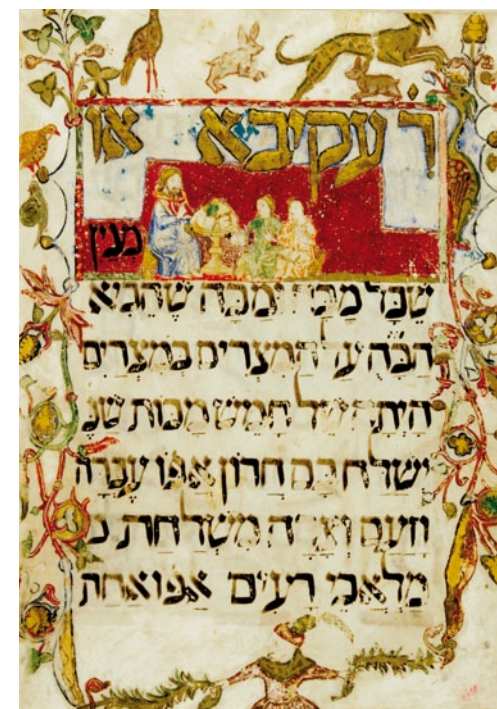 ר עקיבא או
מנין
שֶׁכָּל מַכָּה וּמַכָּה שֶׁהֵבִיא
הקבה עַל הַמִצְרִים בְּמִצְרַיִם
הָיְתָה שֶׁל חָמֵשׁ מַכּוֹת שנ
יְשַׁלַּח בָּם חֲרוֹן אַפּוֹ עֶבְרָה
וָזַעַם וְצָרָה מִשְׁלַחַת
מַלְאֲכֵי רָעִים אַפּוֹ אַחַת